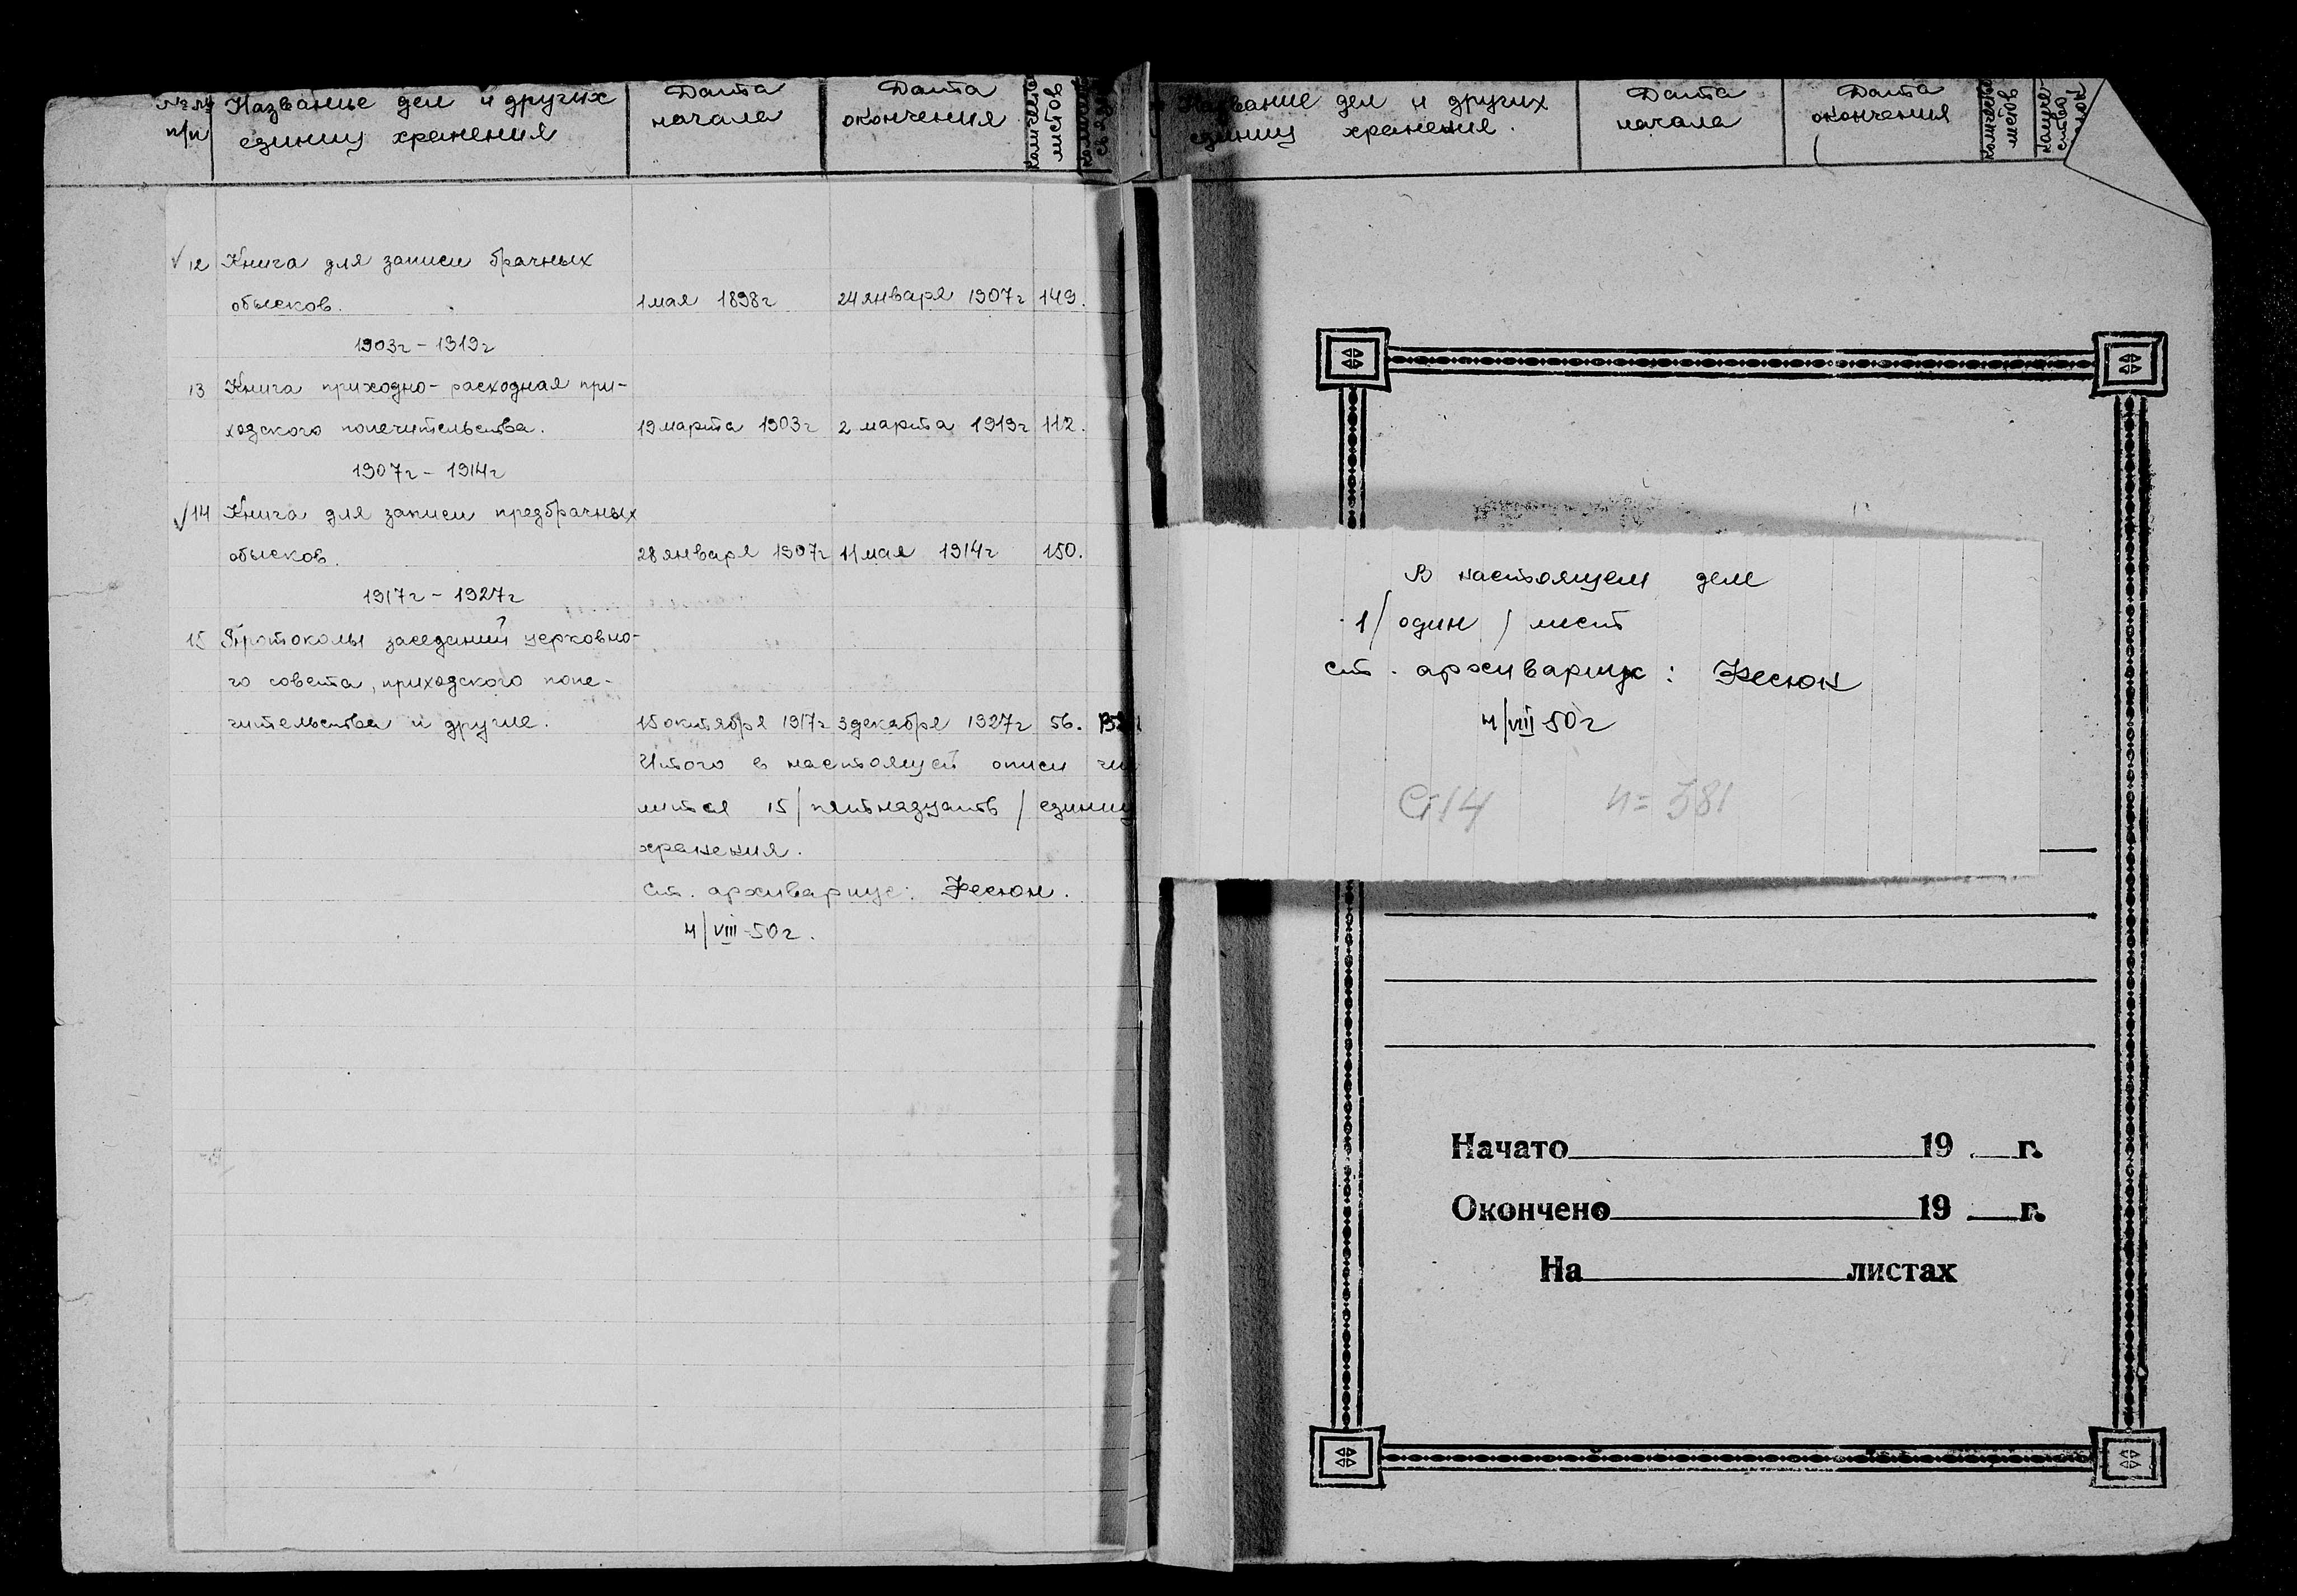 №№ Название дел и других Дата Дата количество
п/п единиц хранения начала окончения листов
√ 12 Книга для записи брачных
обысков. 1 мая 1898г 24 января 1907г 149.
1903г – 1919г
13 Книга приходно-расходная при-
ходского попечительства. 19 марта 1903г 2 марта 1919г 112.
1907г – 1914г
√ 14 Книга для записи предбрачных
обысков. 28 января 1907г 11 мая 1914г 150.
1917г – 1927г
15 Протоколы заседаний церковно-
го совета, приходского попе-
чительства и другие. 15 октября 1917г 3 декабря 1927г 56.
Итого в настоящей описи чис
лится 15 / пятнадцать / единиц
хранения.
Ст. архивариус: Фесюн.
4/VIII-50г.
Название дел и других Дата Дата
единиц хранения. начала окончения
В настоящем деле
1/ один / лист
ст. архивариус: Фесюн
4/VIII 50г
С-14 И = 381
Начато 19 г.
Окончено 19 г.
На листах